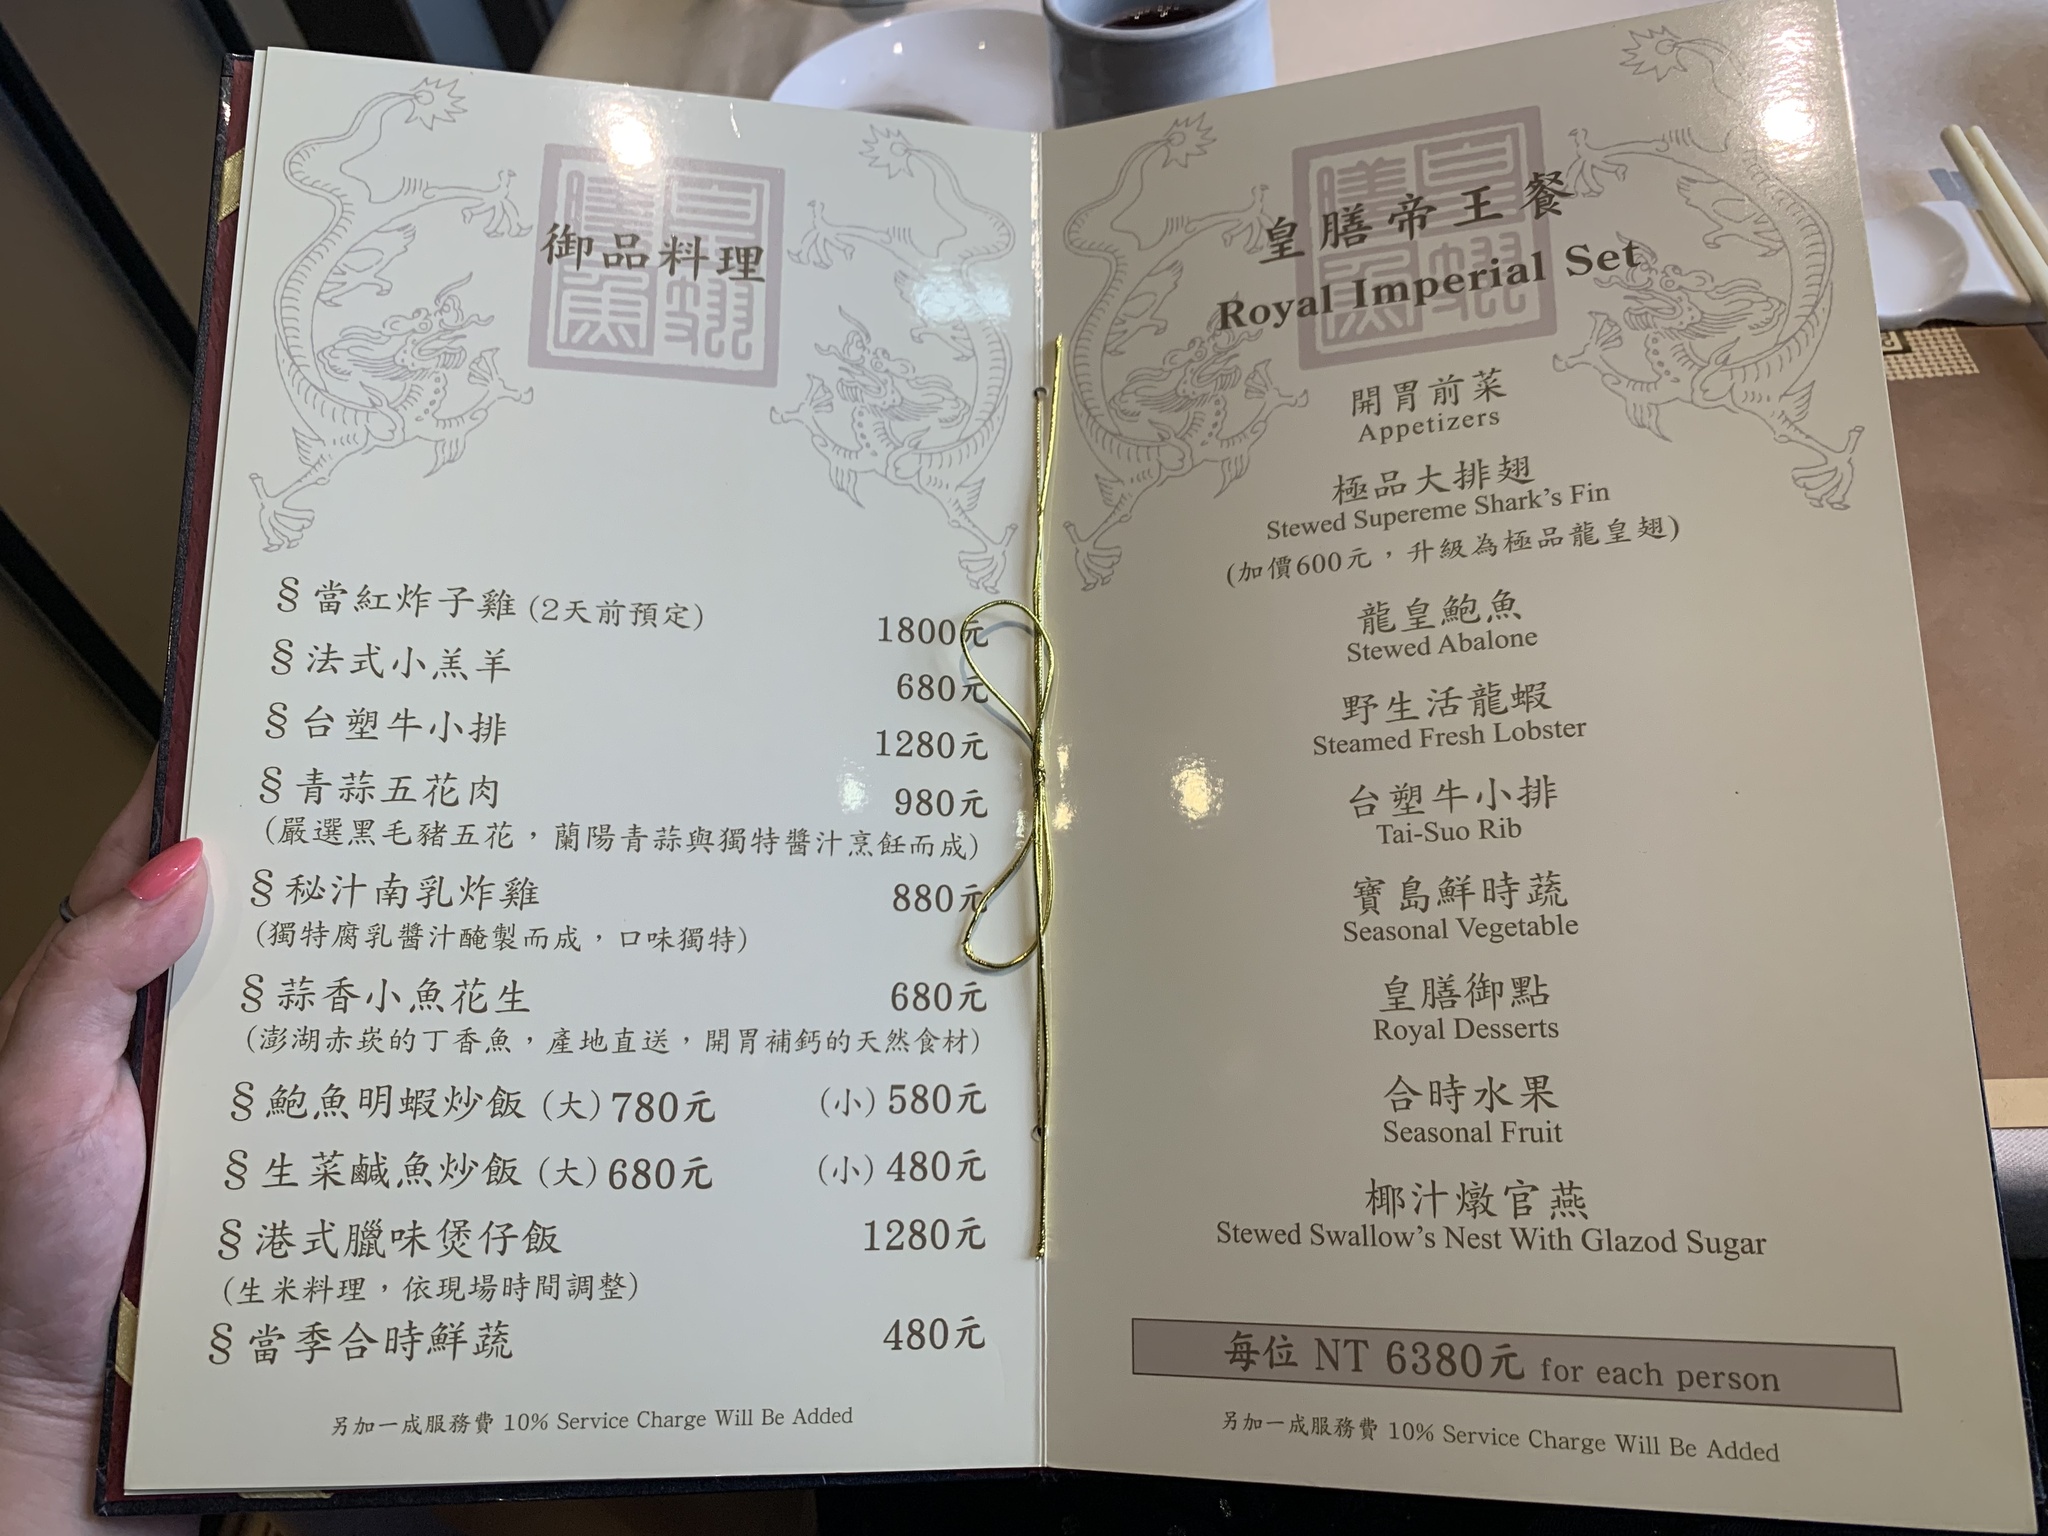 御品料理
§當紅炸子雞(2天前預定) 1800元
§法式小羔羊 680元
§台塑牛小排 1280元
§青蒜五花肉 980元
(嚴選黑毛豬五花，蘭陽青蒜與獨特醬汁烹飪而成)
§秘汁南乳炸雞 880元
(獨特腐乳醬汁醃製而成，口味獨特)
§蒜香小魚花生 680元
(澎湖赤崁的丁香魚，產地直送，開胃補鈣的天然食材)
§鮑魚明蝦炒飯(大)780元 (小)580元
§生菜鹹魚炒飯(大)680元 (小)480元
§港式臘味煲仔飯 1280元
(生米料理，依現場時間調整)
§當季合時鮮蔬 480元
另加一成服務費 10% Service Charge Will Be Added
皇膳帝王餐
Royal Imperial Set
開胃前菜
Appetizers
極品大排翅
Stewed Supereme Shark's Fin
(加價600元，升級為極品龍皇翅)
龍皇鮑魚
Stewed Abalone
野生活龍蝦
Steamed Fresh Lobster
台塑牛小排
Tai-Suo Rib
寶島鮮時蔬
Seasonal Vegetable
皇膳御點
Royal Desserts
合時水果
Seasonal Fruit
椰汁燉官燕
Stewed Swallow's Nest With Glazod Sugar
每位 NT 6380元 for each person
另加一成服務費 10% Service Charge Will Be Added